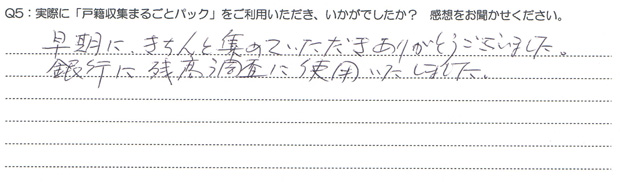 Q5：実際に「戸籍収集まるごとパック」をご利用いただき、いかがでしたか？　感想をお聞かせください。
早期に、きちんと集めていただきありがとうございました。
銀行に残高調査に使用いたしました。